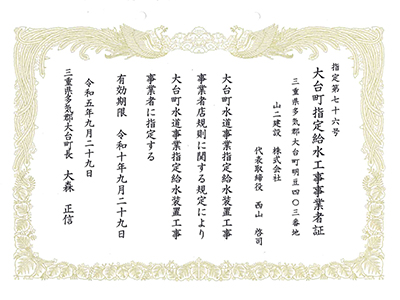 指定第七十六号
大台町指定給水工事事業者証
三重県多気郡大台町明豆四〇三番地
山二建設 株式会社
代表取締役 西山 啓司
大台町水道事業指定給水装置工事
事業者店規則に関する規定により
大台町水道事業指定給水装置工事
事業者に指定する
有効期限 令和十年九月二十九日
令和五年九月二十九日
三重県多気郡大台町長 大森 正信